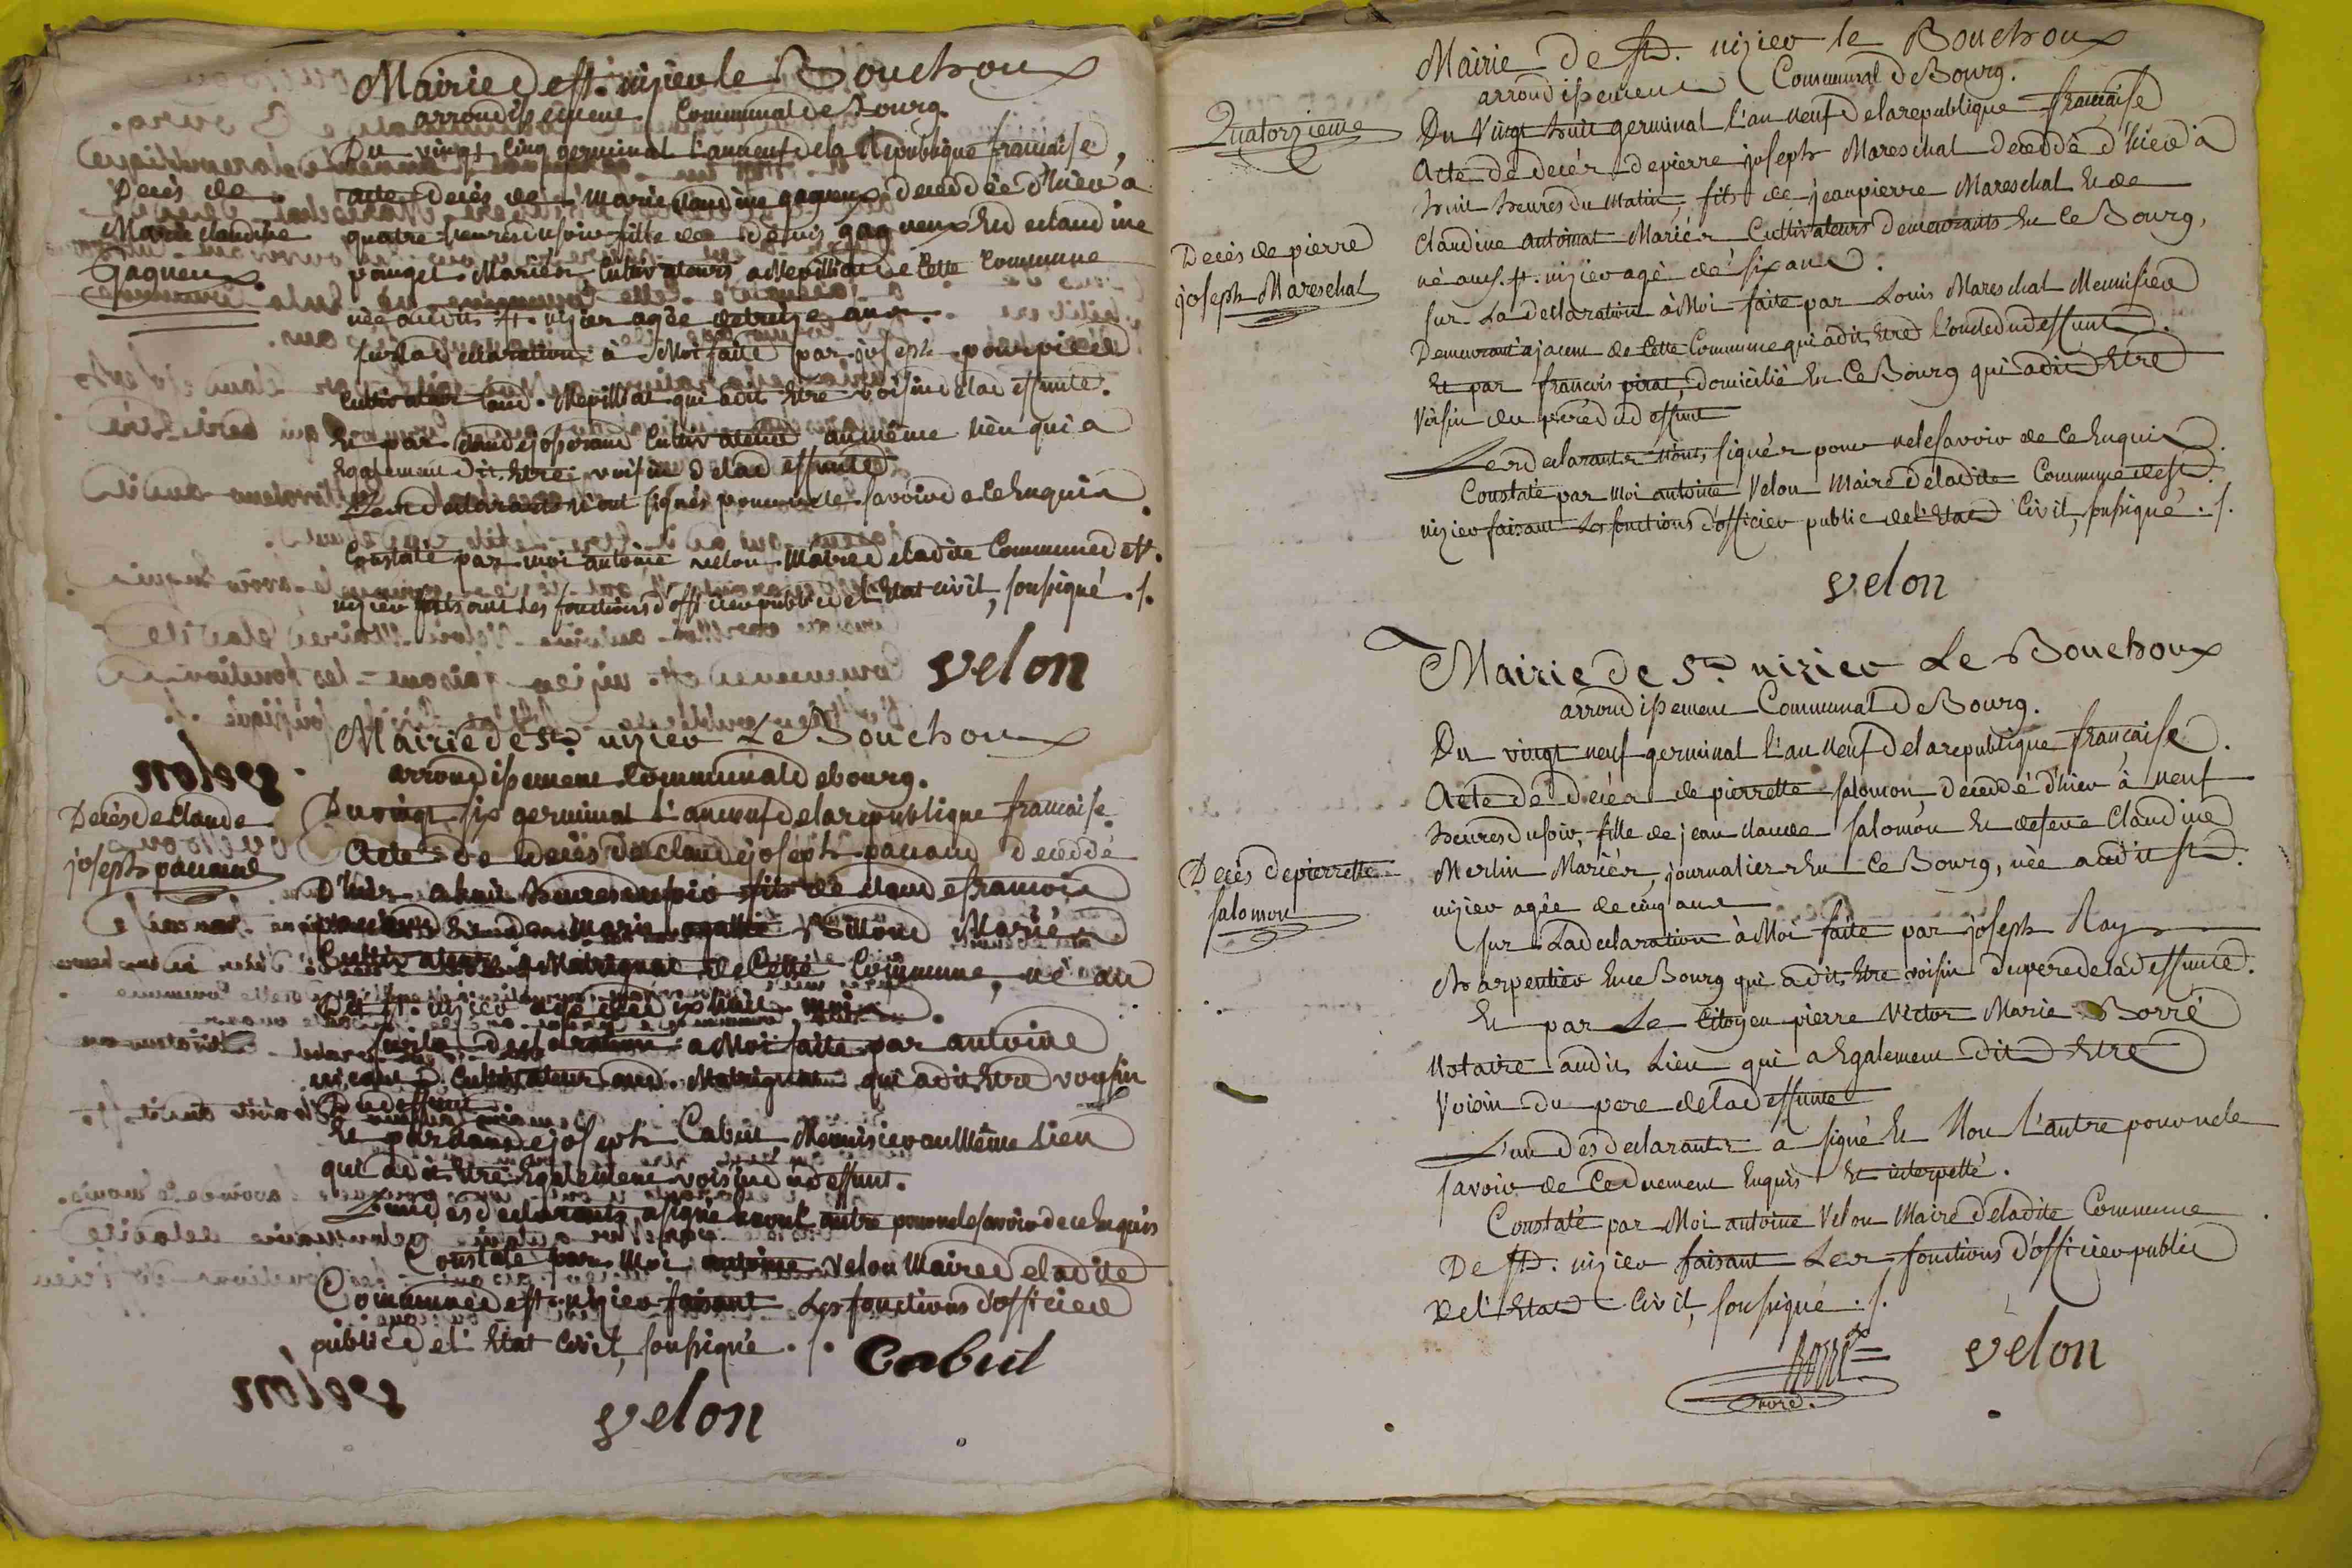 Mairie de st. nizier le Bouchoux
arrondissement Communal de Bourg.
Du vingt cinq germinal l'an neuf de la République française,
Décés de
Marie claudine
Gagneux.
acte de décés de Marie claudine gagneux decedée d'hier a
quatre heures du soir fille de denis gagneux Et de claudine
pauget Mariés Cultivateurs a Mepillat de Cette Commune
née audit st. nizier agée de treize ans.
sur la declaration à Moi faite par joseph
Cultivateur aud. Mepillat qui a dit Etre voisin de la deffunte.
Et par claude josserand Cultivateur au même lieu qui a
Egalement dit Etre voisin de la deffunte
Les declarants n'ont signés pour ne le savoir de Ce Enquis.
Constaté par moi antoine velon Maire de ladite Commune de st.
nizier faisant les fonctions d'officier public de l'Etat civil, soussigné ./.
velon
Mairie de St. nizier Le Bouchoux
arrondissement Communal de bourg.
Décés de Claude
joseph pauand
Du vingt six germinal l'an neuf de la republique française.
Acte de decés de claude joseph pauand decedé
d'hier a huit heures du soir fils de claude francois
Et de Marie agathe Billoud Mariés
Cultivateurs a Matrignat de Cette Commune, né au
dit st. nizier agé de dix huit mois.
sur la declaration a Moi faite par antoine
nicaud Cultivateur aud. Matrignat qui a dit Etre voysin
Du deffunt
Et par claude joseph Cabut Menuisier au Même Lieu
qui a dit Etre Egalement voisin du deffunt.
L'un des declarants a signé non l'autre pour ne le savoir de ce Enquis
Constaté par Moi antoine Velon Maire de ladite
Commune de st. nizier faisant Les fonctions d'officier
public de l'Etat Civil, soussigné ./.
Cabut
velon
Quatorzieme
Mairie de St. nizier le Bouchoux
arrondissement Communal de Bourg.
Du Vingt huit germinal l'an neuf de la republique française
Decés de pierre
joseph Mareschal
Acte de decés de pierre joseph Mareschal decedé d'hier à
huit heures du Matin, fils de jean pierre Mareschal Et de
claudine antoinat Mariés Cultivateurs demeurants En Ce Bourg,
né aud. st. nizier agé de six ans.
sur La declaration à Moi faite par Louis Mareschal Menuisier
Demeurant ajacent de Cette Commune qui a dit Etre l'oncle du deffunt.
Et par francois pirat, domicilié En Ce Bourg qui a dit Etre
Voisin du pere du deffunt
Les declarants n'ont signés pour ne le savoir de Ce Enquis.
Constaté par Moi antoine Velon Maire de ladite Commune de st.
nizier faisant Les fonctions d'officier public de l'Etat Civil, soussigné ./.
velon
Mairie de St. nizier Le Bouchoux
arrondissement Communal de Bourg.
Du vingt neuf germinal l'an neuf de la republique française.
Decés de pierrette
salomon
Acte de decés de pierrette salomon, decedé d'hier à neuf
heures du soir, fille de jean claude salomon Et de feue Claudine
Merlin Mariés, journaliers En Ce Bourg, née audit st.
nizier agée de cinq ans
sur La declaration à Moi faite par joseph Ray
charpentier En ce Bourg qui a dit Etre voisin du pere de la deffunte.
Et par Le Citoyen pierre Victor Marie Borré
Notaire audit Lieu qui a Egalement dit Etre
Voisin du pere de la deffunte
L'un des declarants a signé Et Non l'autre pour ne le
savoir de Ce duement Enquis Et interpellé.
Constaté par Moi antoine Velon Maire de ladite Commune
De St. nizier faisant Les fonctions d'officier public
de l'Etat Civil, soussigné ./.
Borré
velon